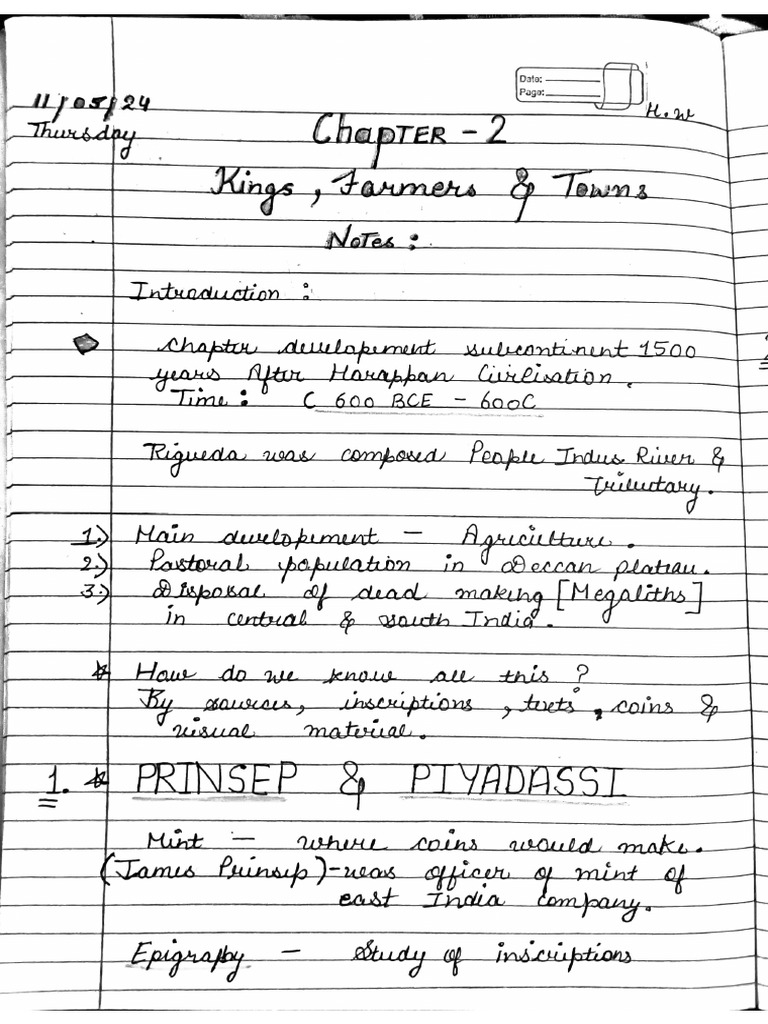 Date:
Page:
11/05/24
H.w
Thursday
ChapTER - 2
Kings, Farmers & Towns
NoTes :
Introduction :
Chapter developement subcontinent 1500
years After Harappan Civilisation.
Time : C 600 BCE - 600C
Rigveda was composed People Indus River &
Tributary.
1.) Main developement - Agriculture.
2.) Pastoral population in Deccan plateau.
3.) Disposal of dead making [Megaliths]
in central & south India.
How do we know all this ?
By sources, inscriptions, texts, coins &
visual material.
1. PRINSEP & PIYADASSI
Mint - where coins would make.
(James Prinsep) - was officer of mint of
east India company.
Epigraphy - Study of inscriptions